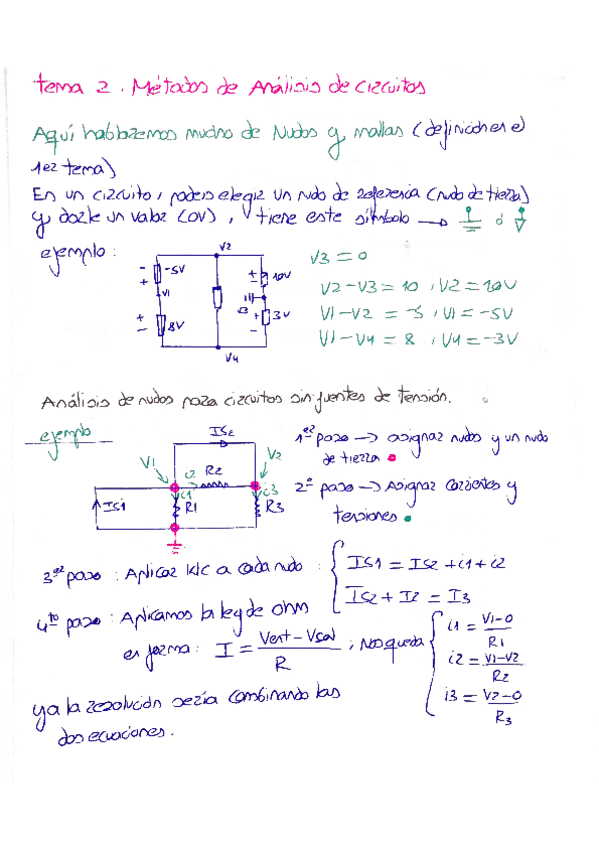 tema 2. Métodos de Análisis de circuitos
Aquí hablaremos mucho de Nudos y mallas (definiciones el
1er tema)
En un circuito, podeis elegir un nudo de referencia (nudo de tierra)
y darle un valor (0V), tiene este símbolo → ó
ejemplo:
V2
- -5V
+
V1
+ 8V
-
+ 10V
-
V3
+ 3V
-
V4
V3 = 0
V2 - V3 = 10 , V2 = 10V
V1 - V2 = -5 , V1 = -5V
V1 - V4 = 8 , V4 = -3V
Análisis de nudos para circuitos sin fuentes de tensión.
ejemplo
IS2
V1
V2
i2 R2
IS1
i1
R1
i3
R3
1er paso → asignar nudos y un nudo
de tierra
2º paso → Asignar corrientes y
tensiones
3er paso : Aplicar klc a cada nudo : IS1 = IS2 + i1 + i2
IS2 + I2 = I3
4to paso : Aplicamos la ley de ohm
en forma: I = Vent - Vsal / R ; Nos queda
i1 = V1-0 / R1
i2 = V1-V2 / R2
i3 = V2-0 / R3
ya la resolución sería combinando las
dos ecuaciones.